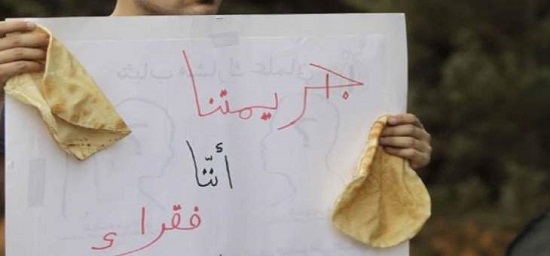 جريمتنا
أنّنا
فقراء